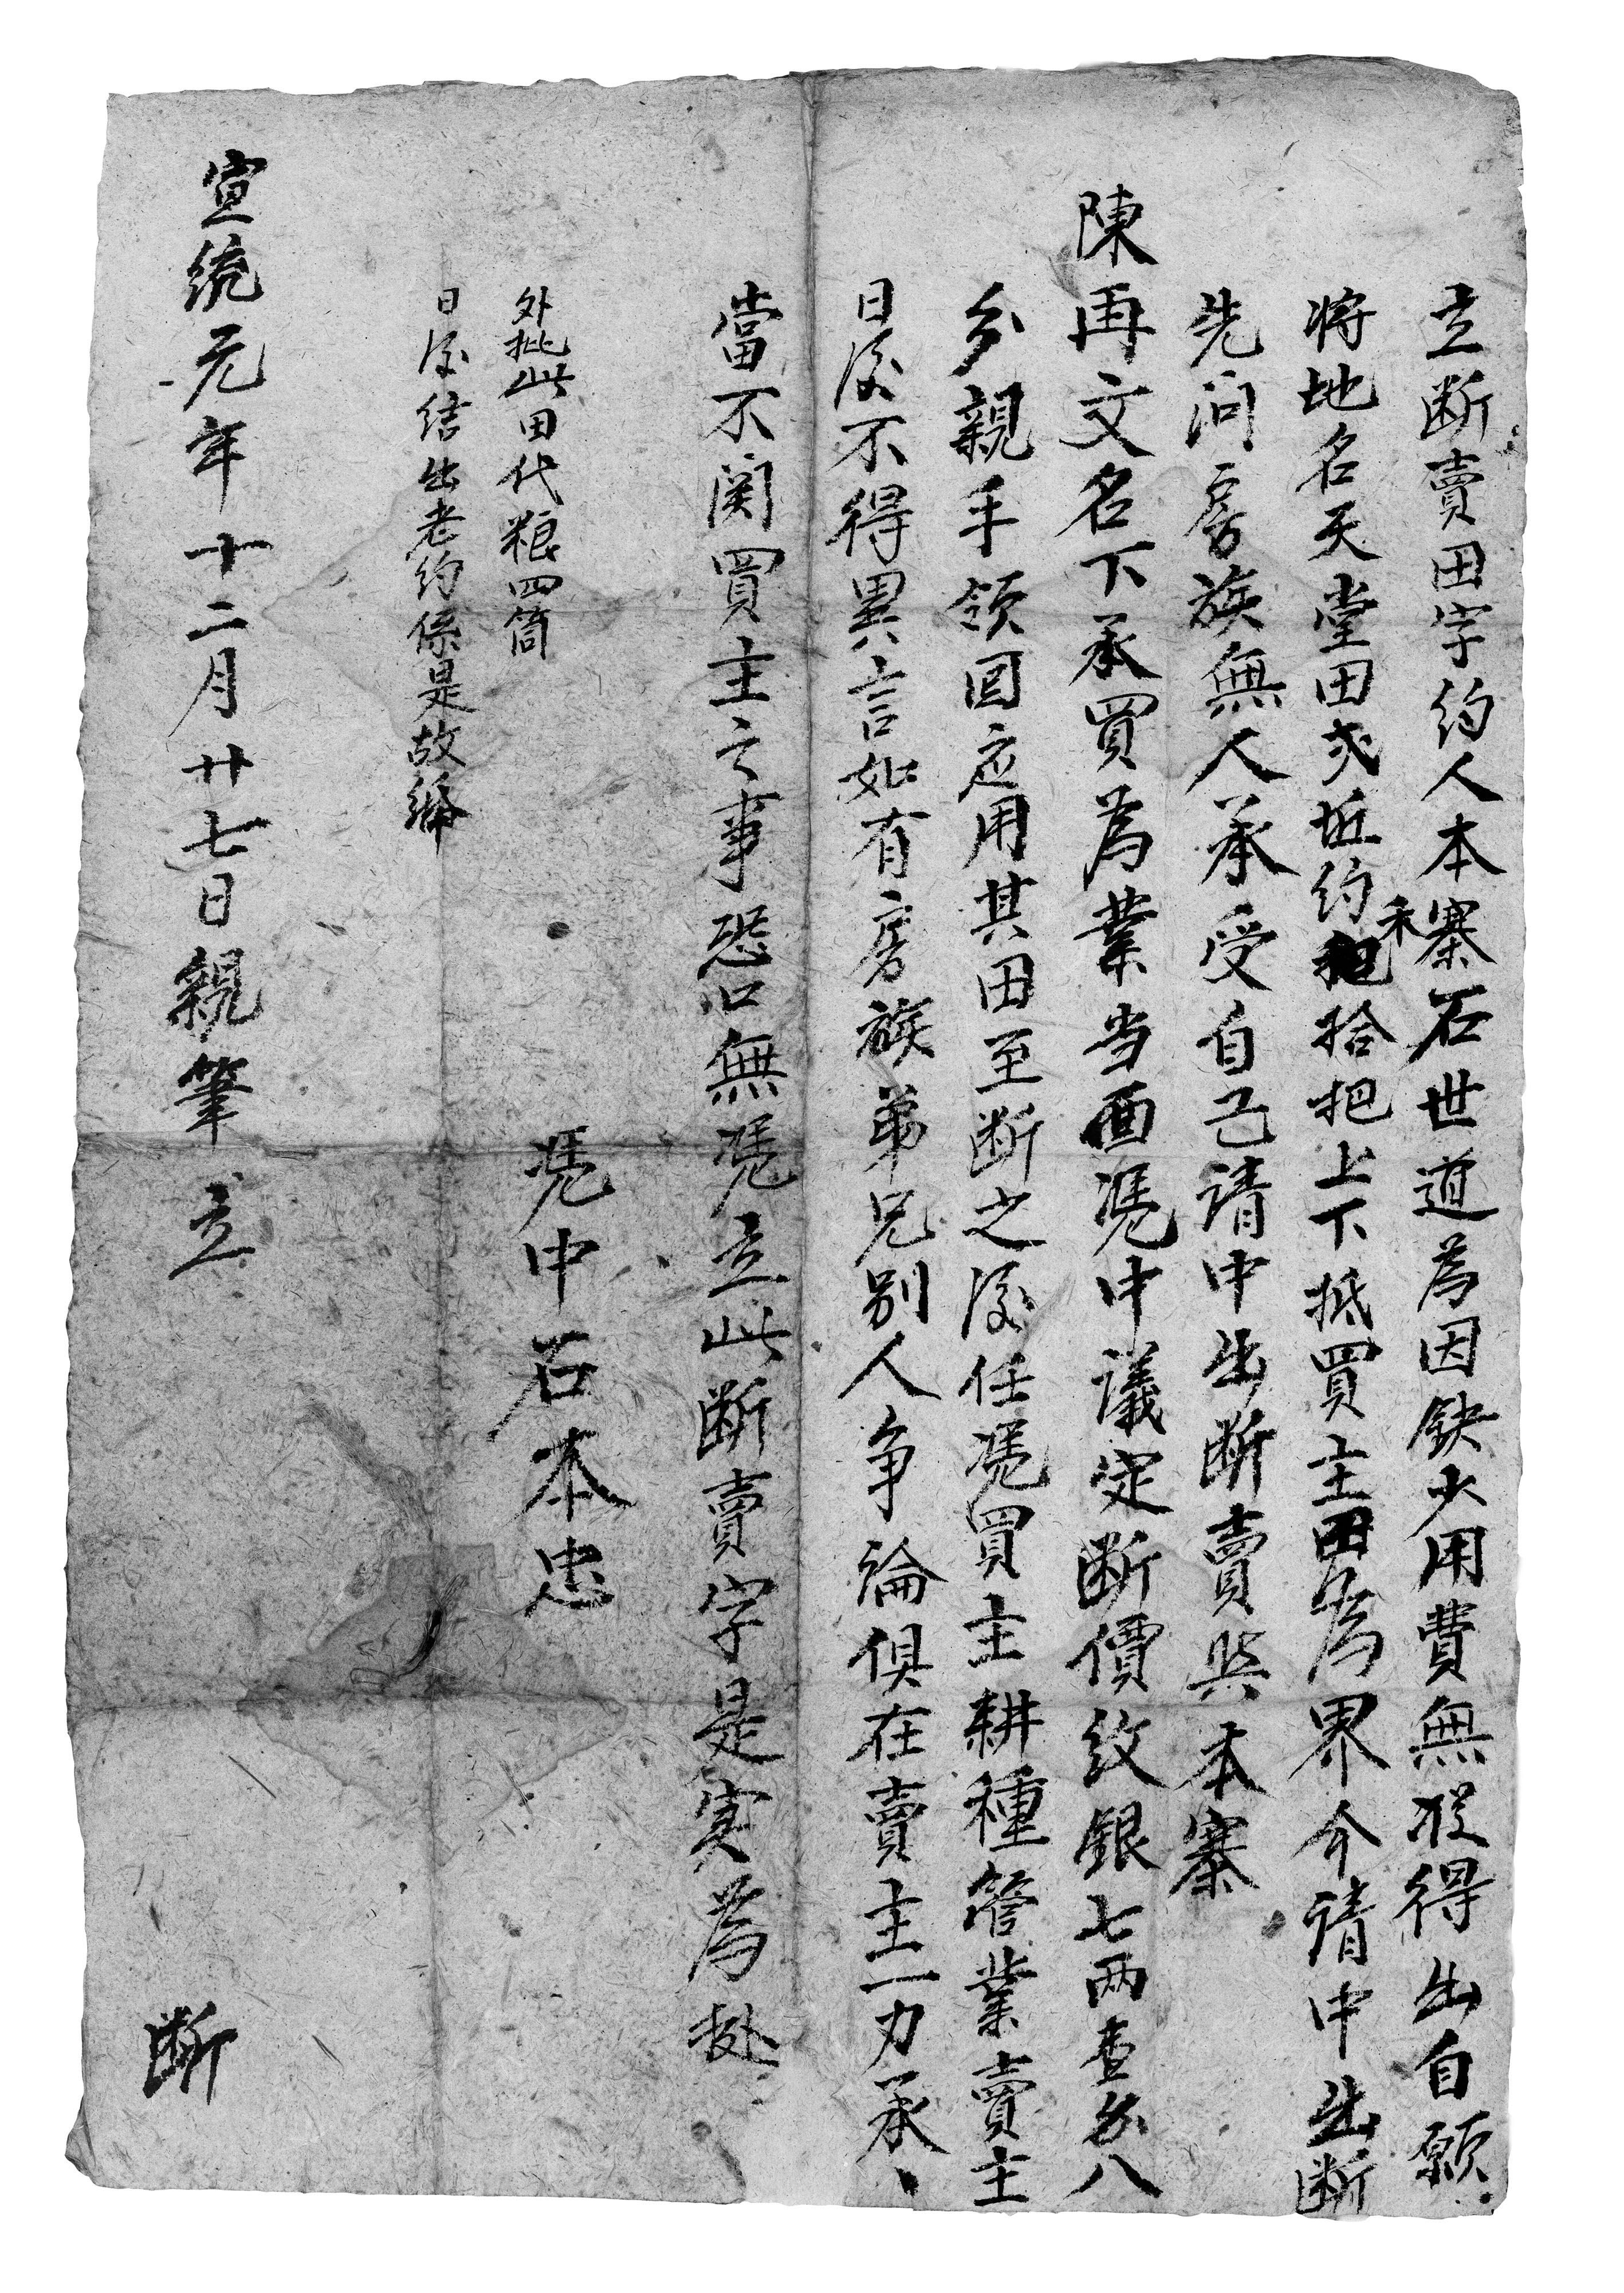 立断賣田字約人本寨石世道為因缺少用費無授得出自願
将地名天堂田弍坵約禾拾把上下抵買主田為界今請中出断
先问房族無人承受自己请中出断賣與本寨
陳再文名下承買為業当面凴中議定断價纹銀七两叁分八
分親手領囬应用其田至断之後任凴買主耕種管業賣主
日後不得異言如有房族弟兄別人争論俱在賣主一力承、
當不関買主之事恐口無凴立此断賣字是实為㨿
外批此田代粮四筒
日後结出老約係是故紙
凴中石本忠
宣统元年十二月廿七日親筆立
断